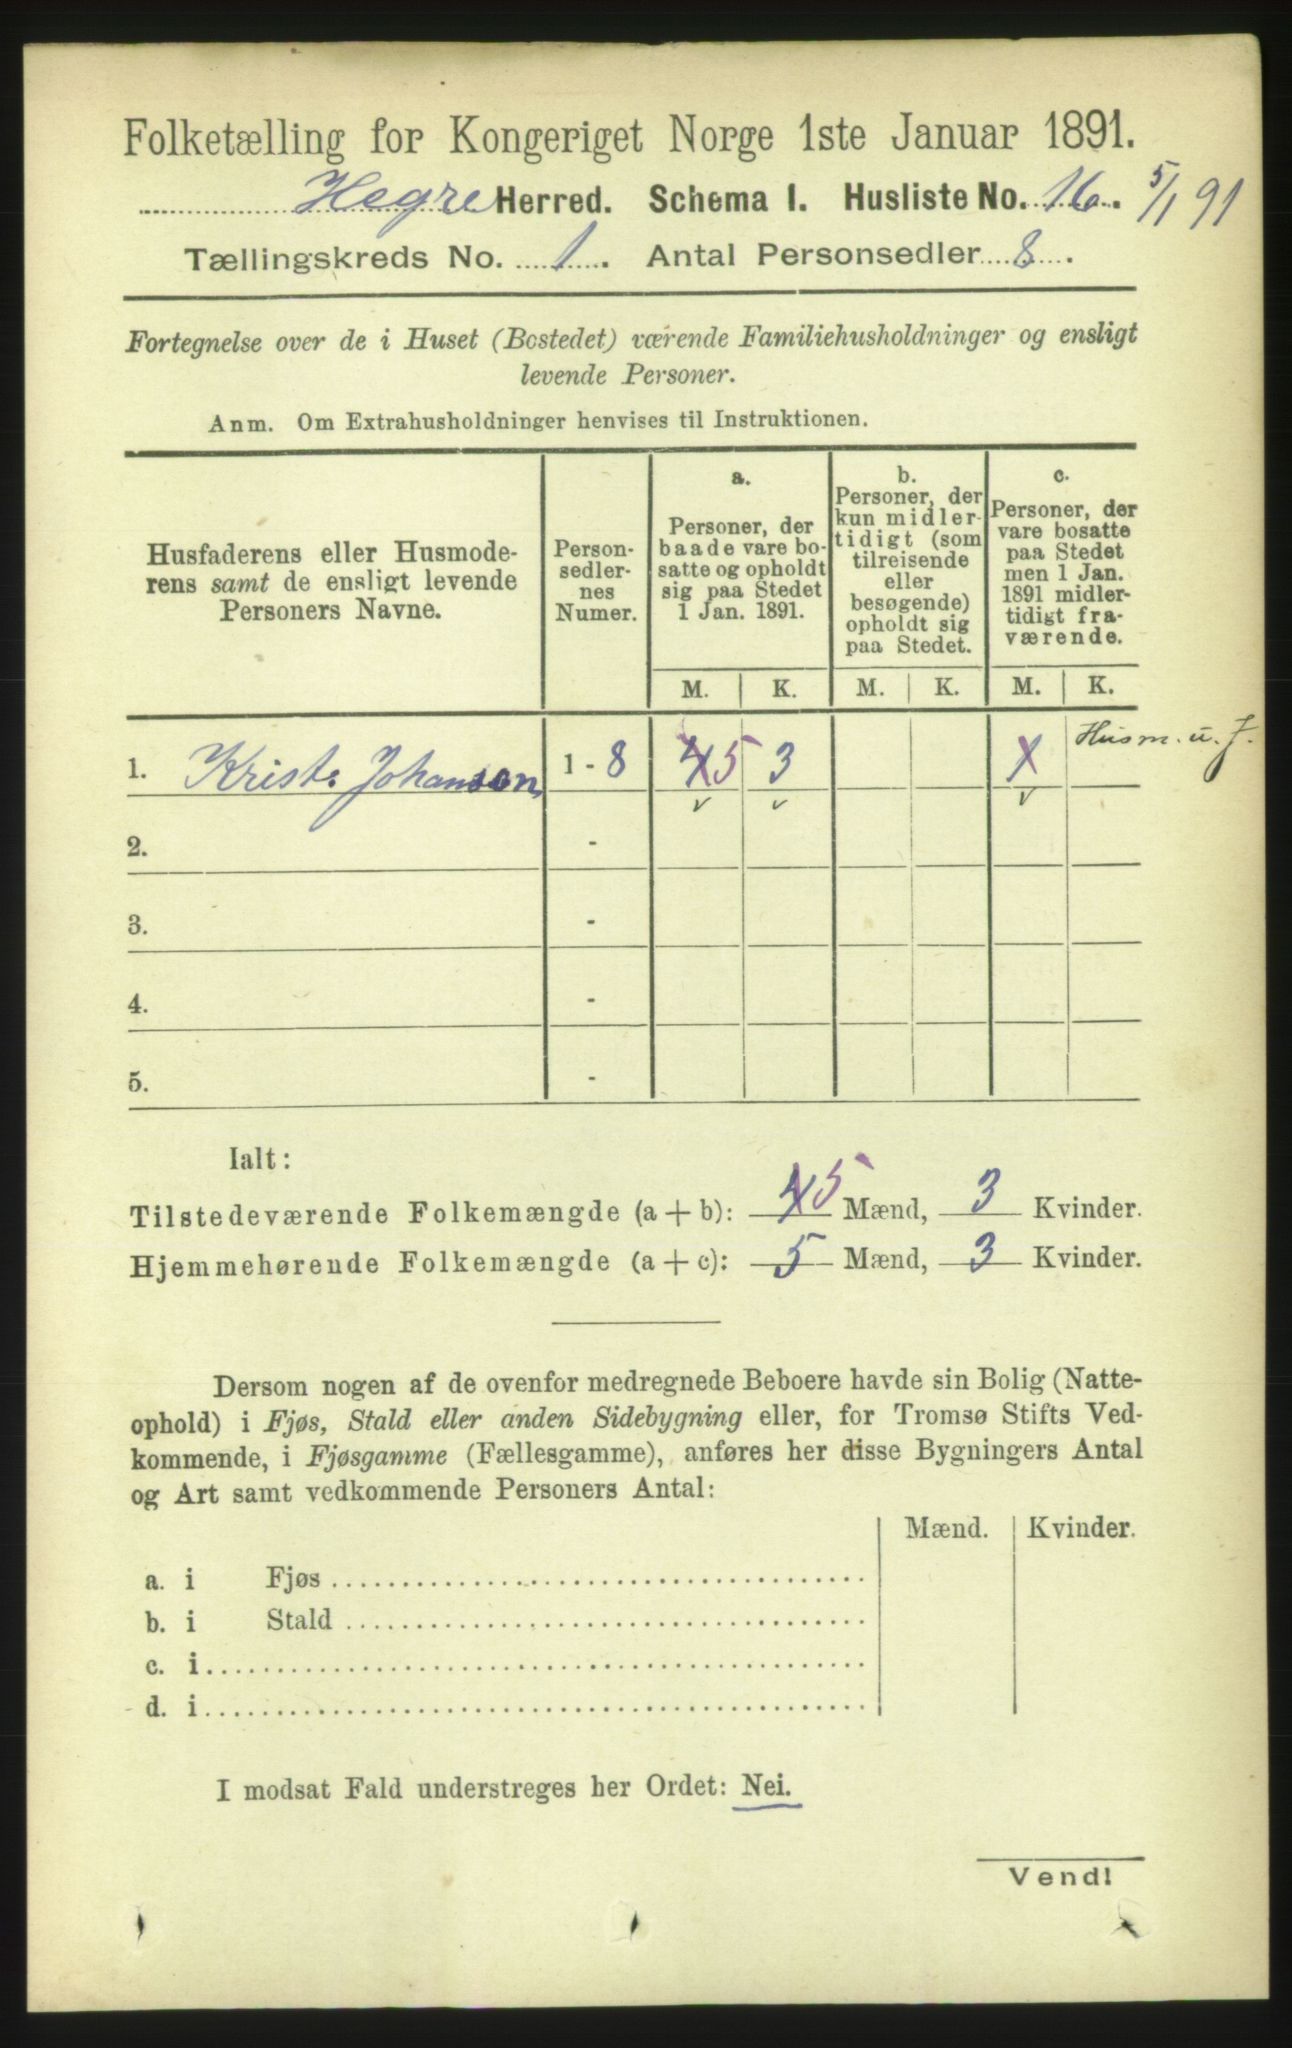 Folketælling for Kongeriget Norge 1ste Januar 1891.
Hegre Herred. Schema I. Husliste No. 16. 5/1 91
Tællingskreds No. 1. Antal Personsedler 8.
Fortegnelse over de i Huset (Bostedet) værende Familiehusholdninger og ensligt
levende Personer.
Anm. Om Extrahusholdninger henvises til Instruktionen.
Husfaderens eller Husmode-
rens samt de ensligt levende
Personers Navne.
Person-
sedler-
nes
Numer.
a.
Personer, der
baade vare bo-
satte og opholdt
sig paa Stedet
1 Jan. 1891.
b.
Personer, der
kun midler-
tidigt (som
tilreisende
eller
besøgende)
opholdt sig
paa Stedet.
c.
Personer, der
vare bosatte
paa Stedet
men 1 Jan.
1891 midler-
tidigt fra-
værende.
M. K. M. K. M. K.
1. Krist. Johanson 1 - 8 4 5 3 1 Husm. u. J.
2. -
3. -
4. -
5. -
Ialt:
Tilstedeværende Folkemængde (a + b): 4 5 Mænd, 3 Kvinder.
Hjemmehørende Folkemængde (a + c): 5 Mænd, 3 Kvinder.
Dersom nogen af de ovenfor medregnede Beboere havde sin Bolig (Natte-
ophold) i Fjøs, Stald eller anden Sidebygning eller, for Tromsø Stifts Ved-
kommende, i Fjøsgamme (Fællesgamme), anføres her disse Bygningers Antal
og Art samt vedkommende Personers Antal:
Mænd. Kvinder.
a. i Fjøs
b. i Stald
c. i
d. i
I modsat Fald understreges her Ordet: Nei.
Vend!